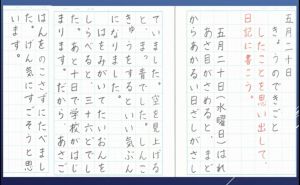 五月二十日
きょうのできごと
したことを思い出して、
日記に書こう。
五月二十日(水曜日)はれ
あさ目がさめると、まど
からあかるい日ざしが見え
ていました。空を見上げる
と、まっ青でした。しんこ
きゅうをするといい気ぶん
になりました。
はをみがいてたいおんを
しらべると、三十六どでし
た。あと十日で学校がはじ
まります。だから、あさご
はんをのこさずにたべまし
た。げん気にすごそうと思
います。